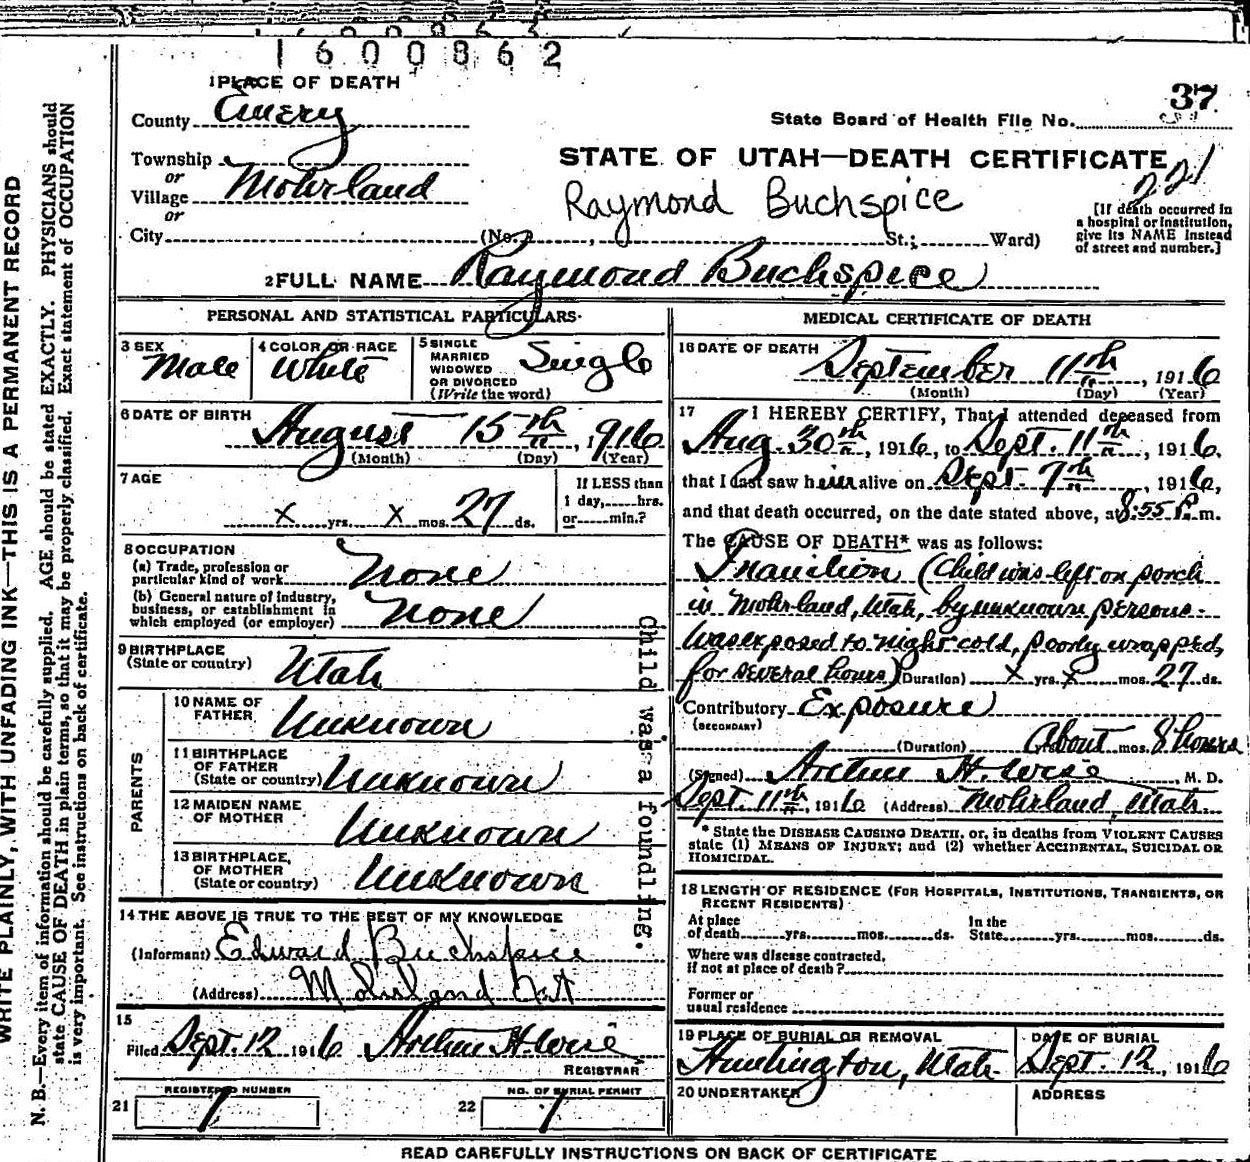 1600862
1 PLACE OF DEATH
County Emery
Township
or
Village Mohrland
or
City (No. , St.; Ward)
37
State Board of Health File No.
STATE OF UTAH—DEATH CERTIFICATE
221
Raymond Buchspice
[If death occurred in
a hospital or institution,
give its NAME instead
of street and number.]
2 FULL NAME Raymond Buchspice
PERSONAL AND STATISTICAL PARTICULARS
3 SEX
Male
4 COLOR OR RACE
White
5 SINGLE
MARRIED
WIDOWED
OR DIVORCED
(Write the word)
Single
6 DATE OF BIRTH
August 15th, 1916
(Month) (Day) (Year)
7 AGE
X yrs. X mos. 27 ds.
If LESS than
1 day, hrs.
or min.?
8 OCCUPATION
(a) Trade, profession or
particular kind of work None
(b) General nature of industry,
business, or establishment in
which employed (or employer) None
9 BIRTHPLACE
(State or country) Utah
PARENTS
10 NAME OF
FATHER Unknown
11 BIRTHPLACE
OF FATHER
(State or country) Unknown
12 MAIDEN NAME
OF MOTHER Unknown
13 BIRTHPLACE,
OF MOTHER
(State or country) Unknown
Child was a foundling.
14 THE ABOVE IS TRUE TO THE BEST OF MY KNOWLEDGE
(Informant) Edward Buchspice
(Address) Mohrland Ut
15
Filed Sept. 12 1916 Arthur H. Wise
REGISTRAR
REGISTERED NUMBER
21 1
NO. OF BURIAL PERMIT
22 1
MEDICAL CERTIFICATE OF DEATH
16 DATE OF DEATH
September 11th, 1916
(Month) (Day) (Year)
17 I HEREBY CERTIFY, That I attended deceased from
Aug. 30th, 1916, to Sept. 11th, 1916,
that I last saw him alive on Sept. 7th, 1916,
and that death occurred, on the date stated above, at 8:55 P. m.
The CAUSE OF DEATH* was as follows:
Inanition (Child was left on porch
in Mohrland, Utah, by unknown persons.
Was exposed to night cold, poorly wrapped,
for several hours) (Duration) X yrs. X mos. 27 ds.
Contributory Exposure
(SECONDARY)
(Duration) About mos. 8 hours
(Signed) Arthur H. Wise, M. D.
Sept. 11th, 1916 (Address) Mohrland, Utah.
* State the DISEASE CAUSING DEATH, or, in deaths from VIOLENT CAUSES
state (1) MEANS OF INJURY; and (2) whether ACCIDENTAL, SUICIDAL OR
HOMICIDAL.
18 LENGTH OF RESIDENCE (FOR HOSPITALS, INSTITUTIONS, TRANSIENTS, OR
RECENT RESIDENTS)
At place
of death yrs. mos. ds.
In the
State yrs. mos. ds.
Where was disease contracted,
if not at place of death?
Former or
usual residence
19 PLACE OF BURIAL OR REMOVAL
Huntington, Utah
DATE OF BURIAL
Sept. 12, 1916
20 UNDERTAKER
ADDRESS
READ CAREFULLY INSTRUCTIONS ON BACK OF CERTIFICATE
WRITE PLAINLY, WITH UNFADING INK—THIS IS A PERMANENT RECORD
N. B.—Every item of information should be carefully supplied. AGE should be stated EXACTLY. PHYSICIANS should
state CAUSE OF DEATH in plain terms, so that it may be properly classified. Exact statement of OCCUPATION
is very important. See instructions on back of certificate.